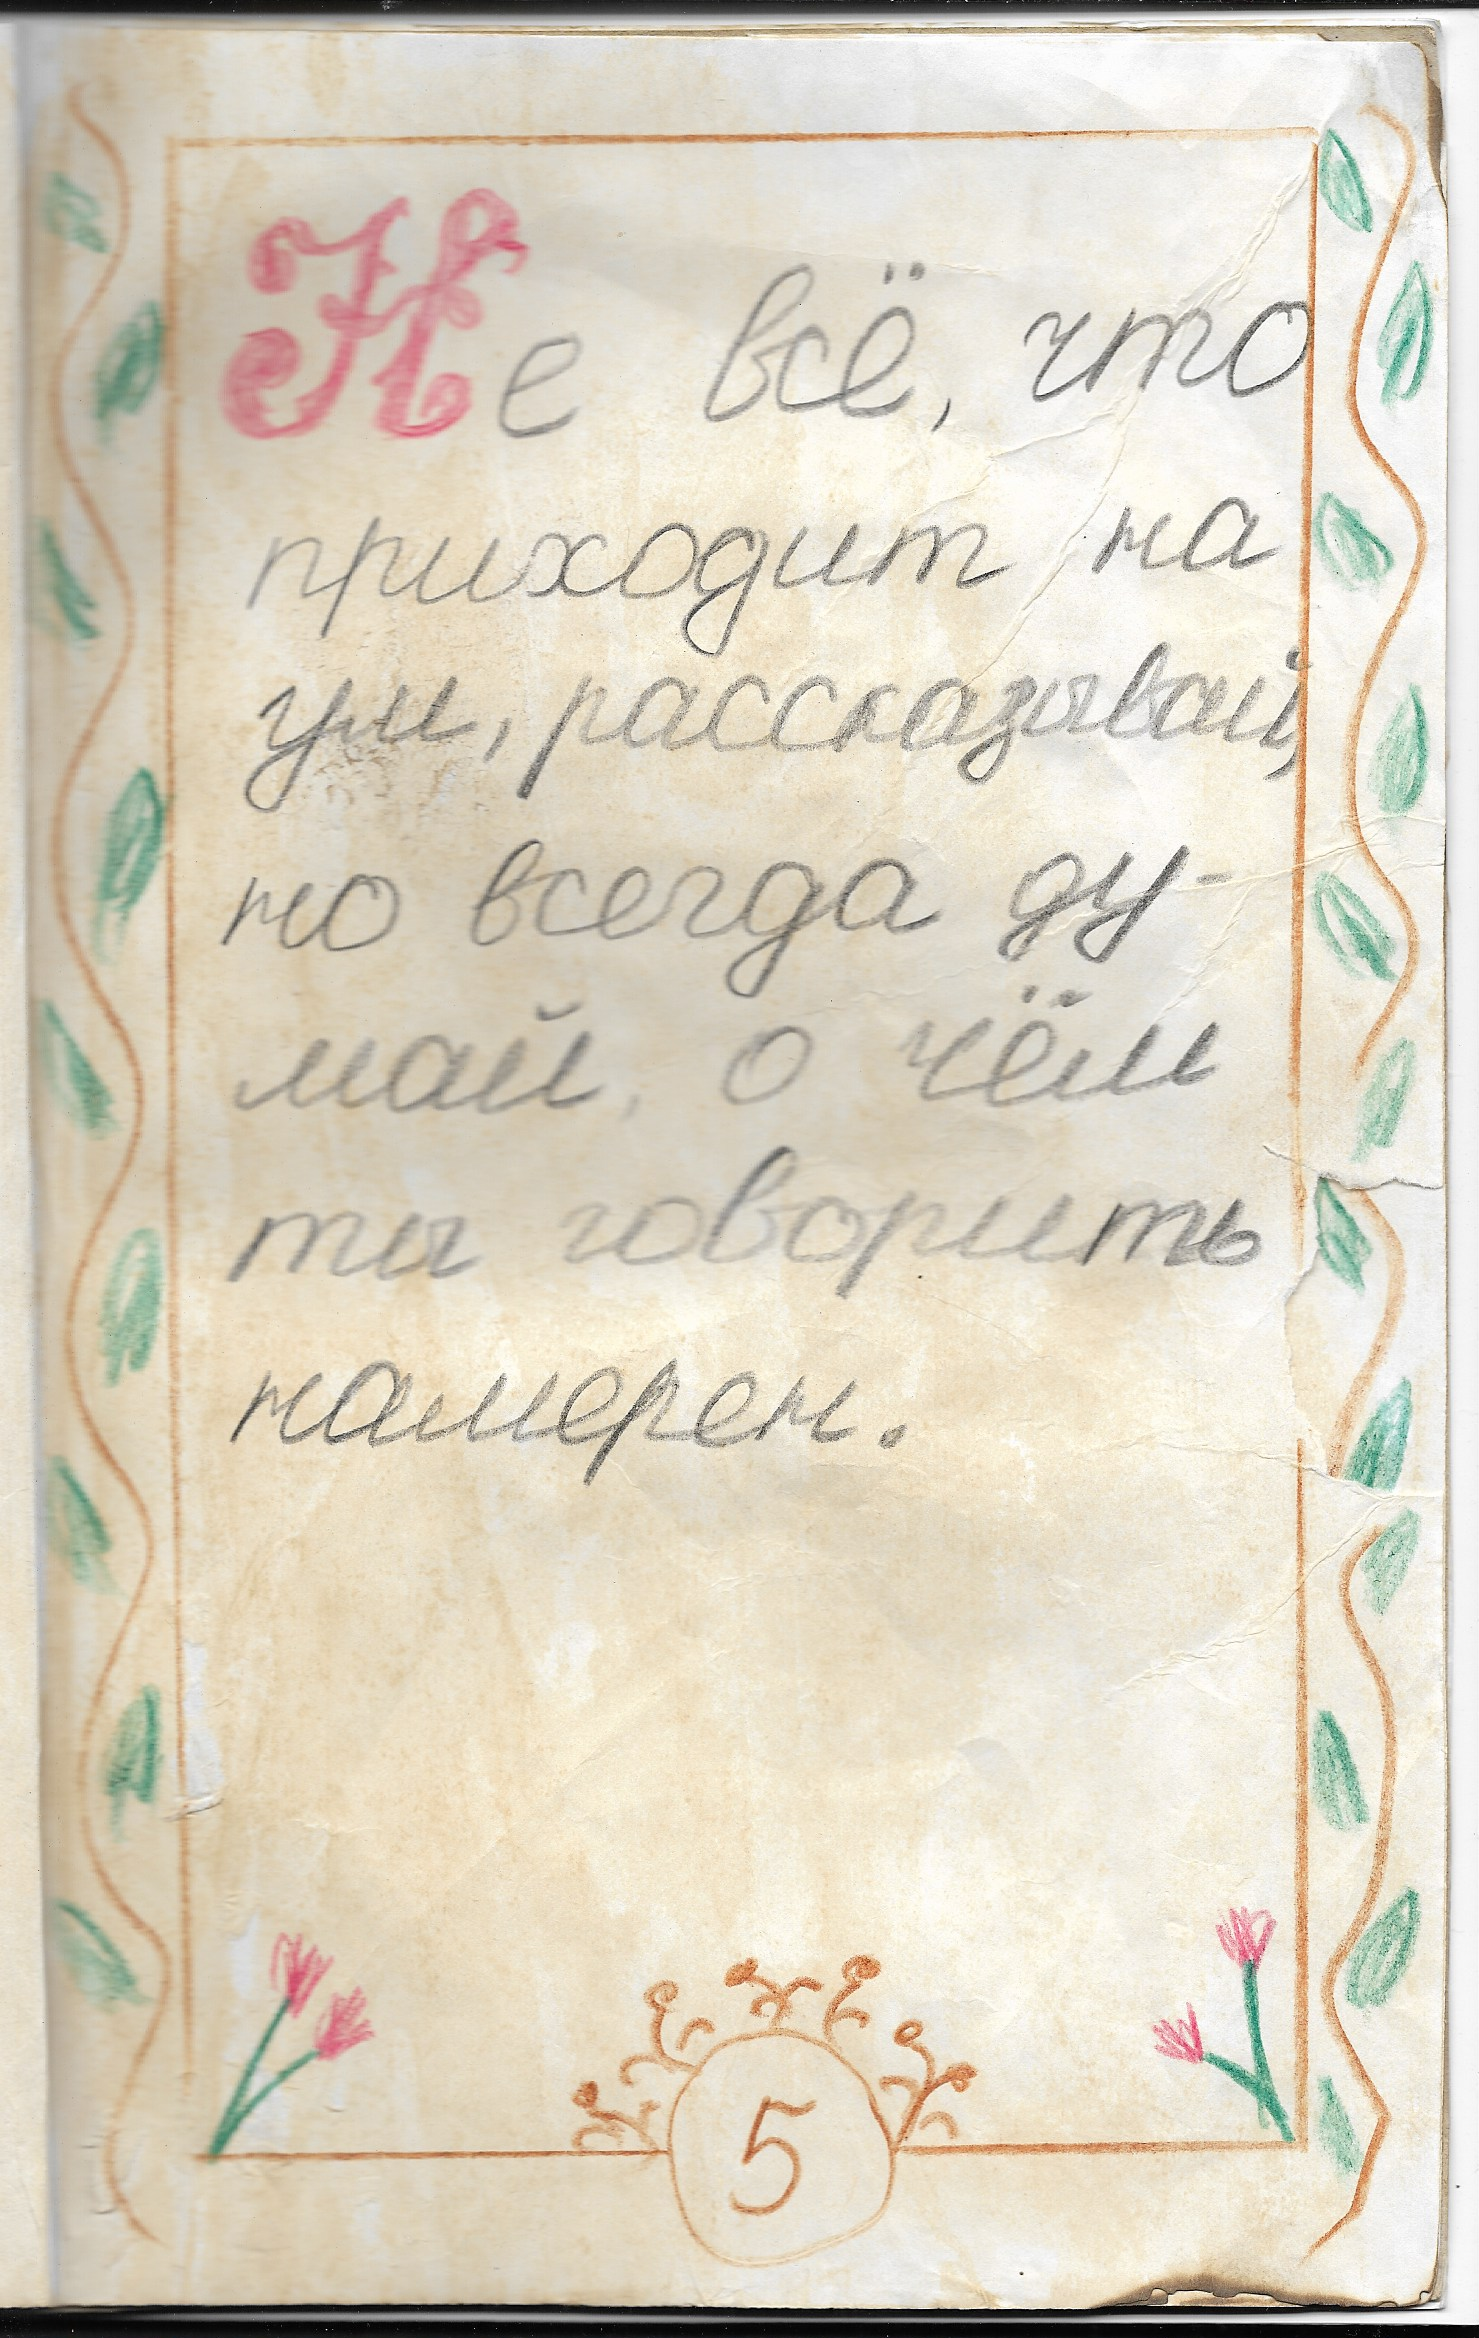 Не всё, что
приходит на
ум, рассказывай,
но всегда ду-
май, о чём
ты говорить
намерен.
5